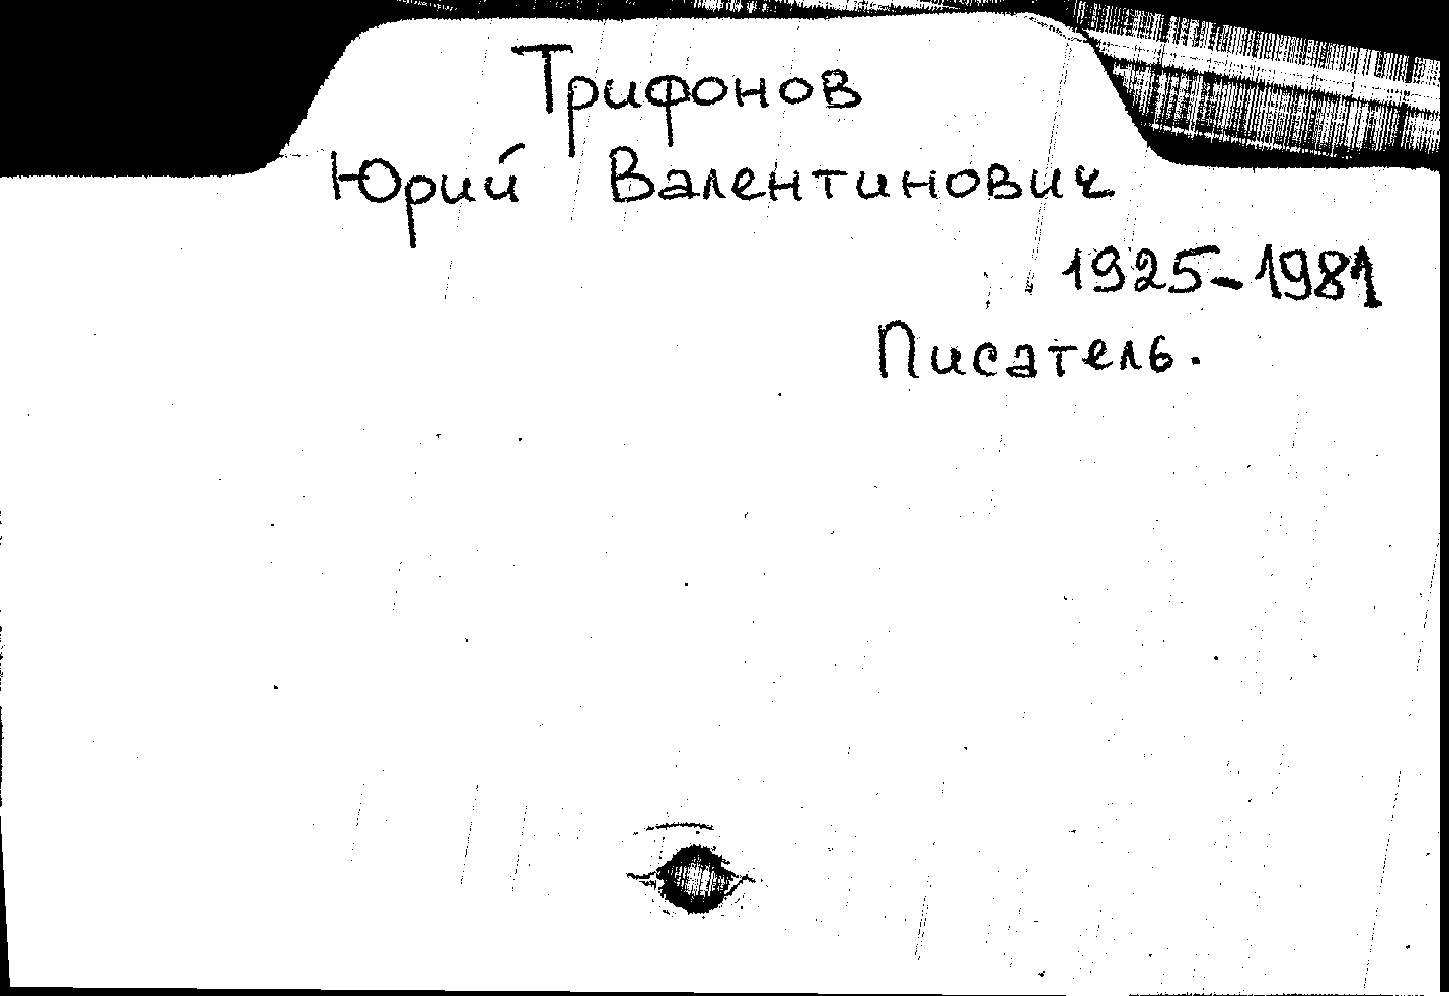 Трифонов
Юрий Валентинович
1925-1981
Писатель.